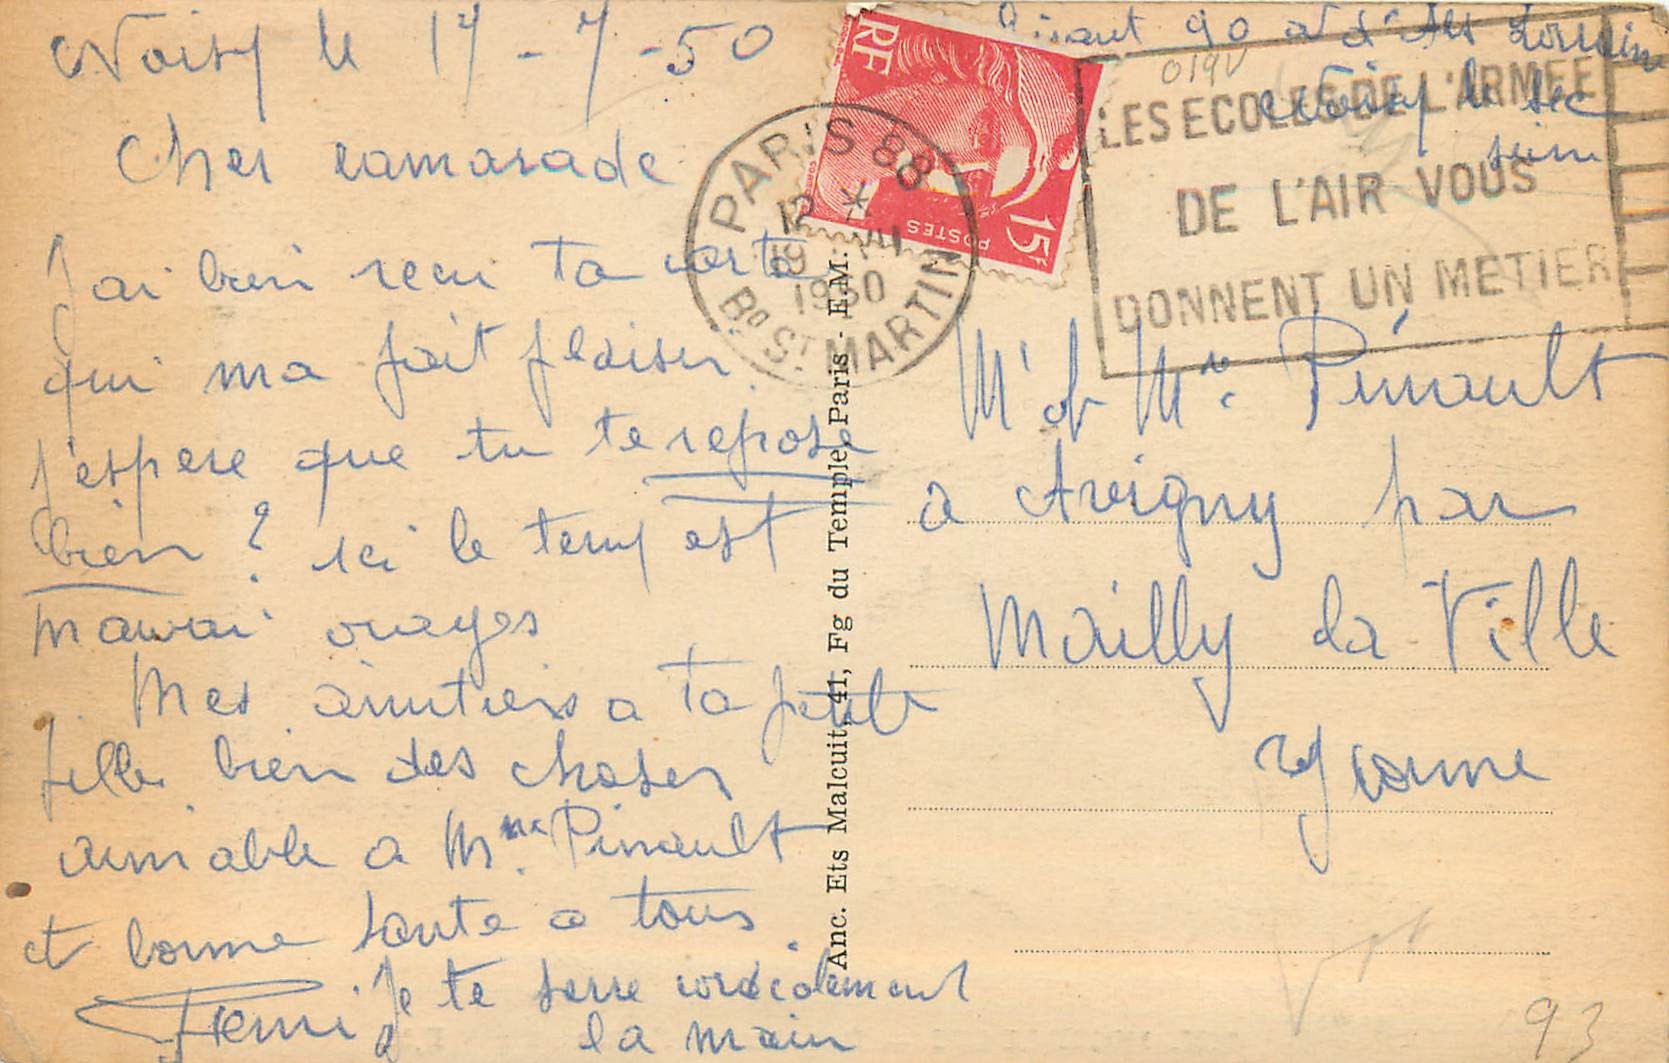 Noisy le 17-7-50
Cher camarade
J'ai bien recu ta carte
qui ma fait plaisir.
j'espere que tu te repose
bien ? ici le temp est
mauvai orages
Mes amitiers a ta petite
fille bien des choses
aimable a Mme Pinault
et bonne sante a tous
Je te serre cordialement
la main
Remi
90 a d'Als Lorraine
Noisy le sec
Seine
019V
RF
15F
POSTES
PARIS 88
12 *
19 VII
1950
Bd ST MARTIN
LES ECOLES DE L'ARMEE
DE L'AIR VOUS
DONNENT UN METIER
Mr et Me Pinault
a Avigny par
Mailly la Ville
Yonne
Anc. Ets Malcuit, 41, Fg du Temple, Paris - E.M.
93